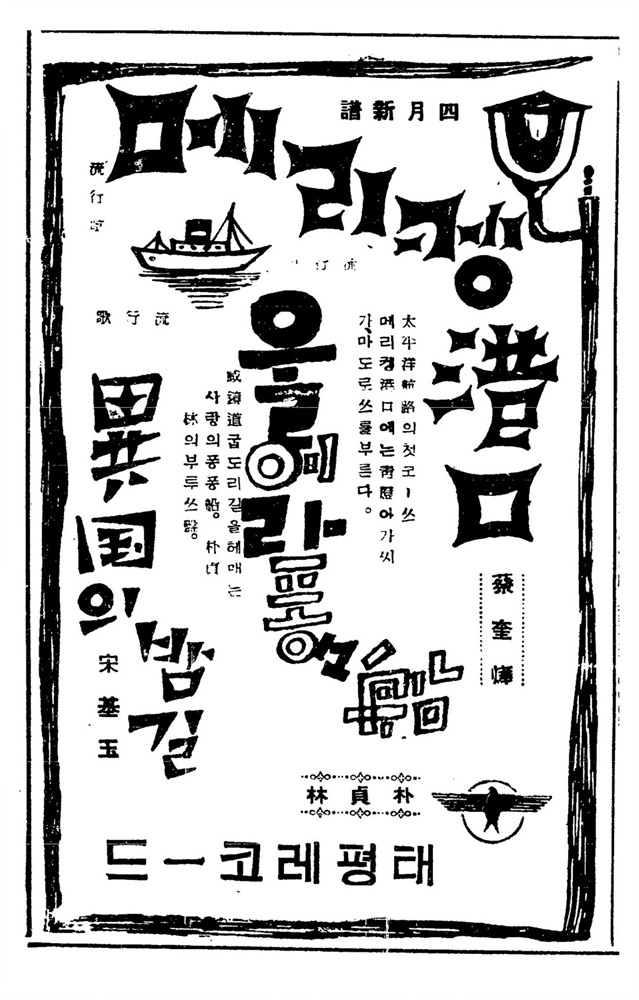 四月新譜
流行歌
메리켕
港口
太平洋航路의첫코ー쓰
메리켕港口에는靑燈아가씨
가、마도로쓰를부른다。
蔡奎燁
流行
울헤라
풍풍船
咸鏡道굽도리길을헤매는
사랑의풍풍船。朴貞
林의부루쓰
朴貞林
流行歌
異国의
밤길
宋基玉
태평레코ー드